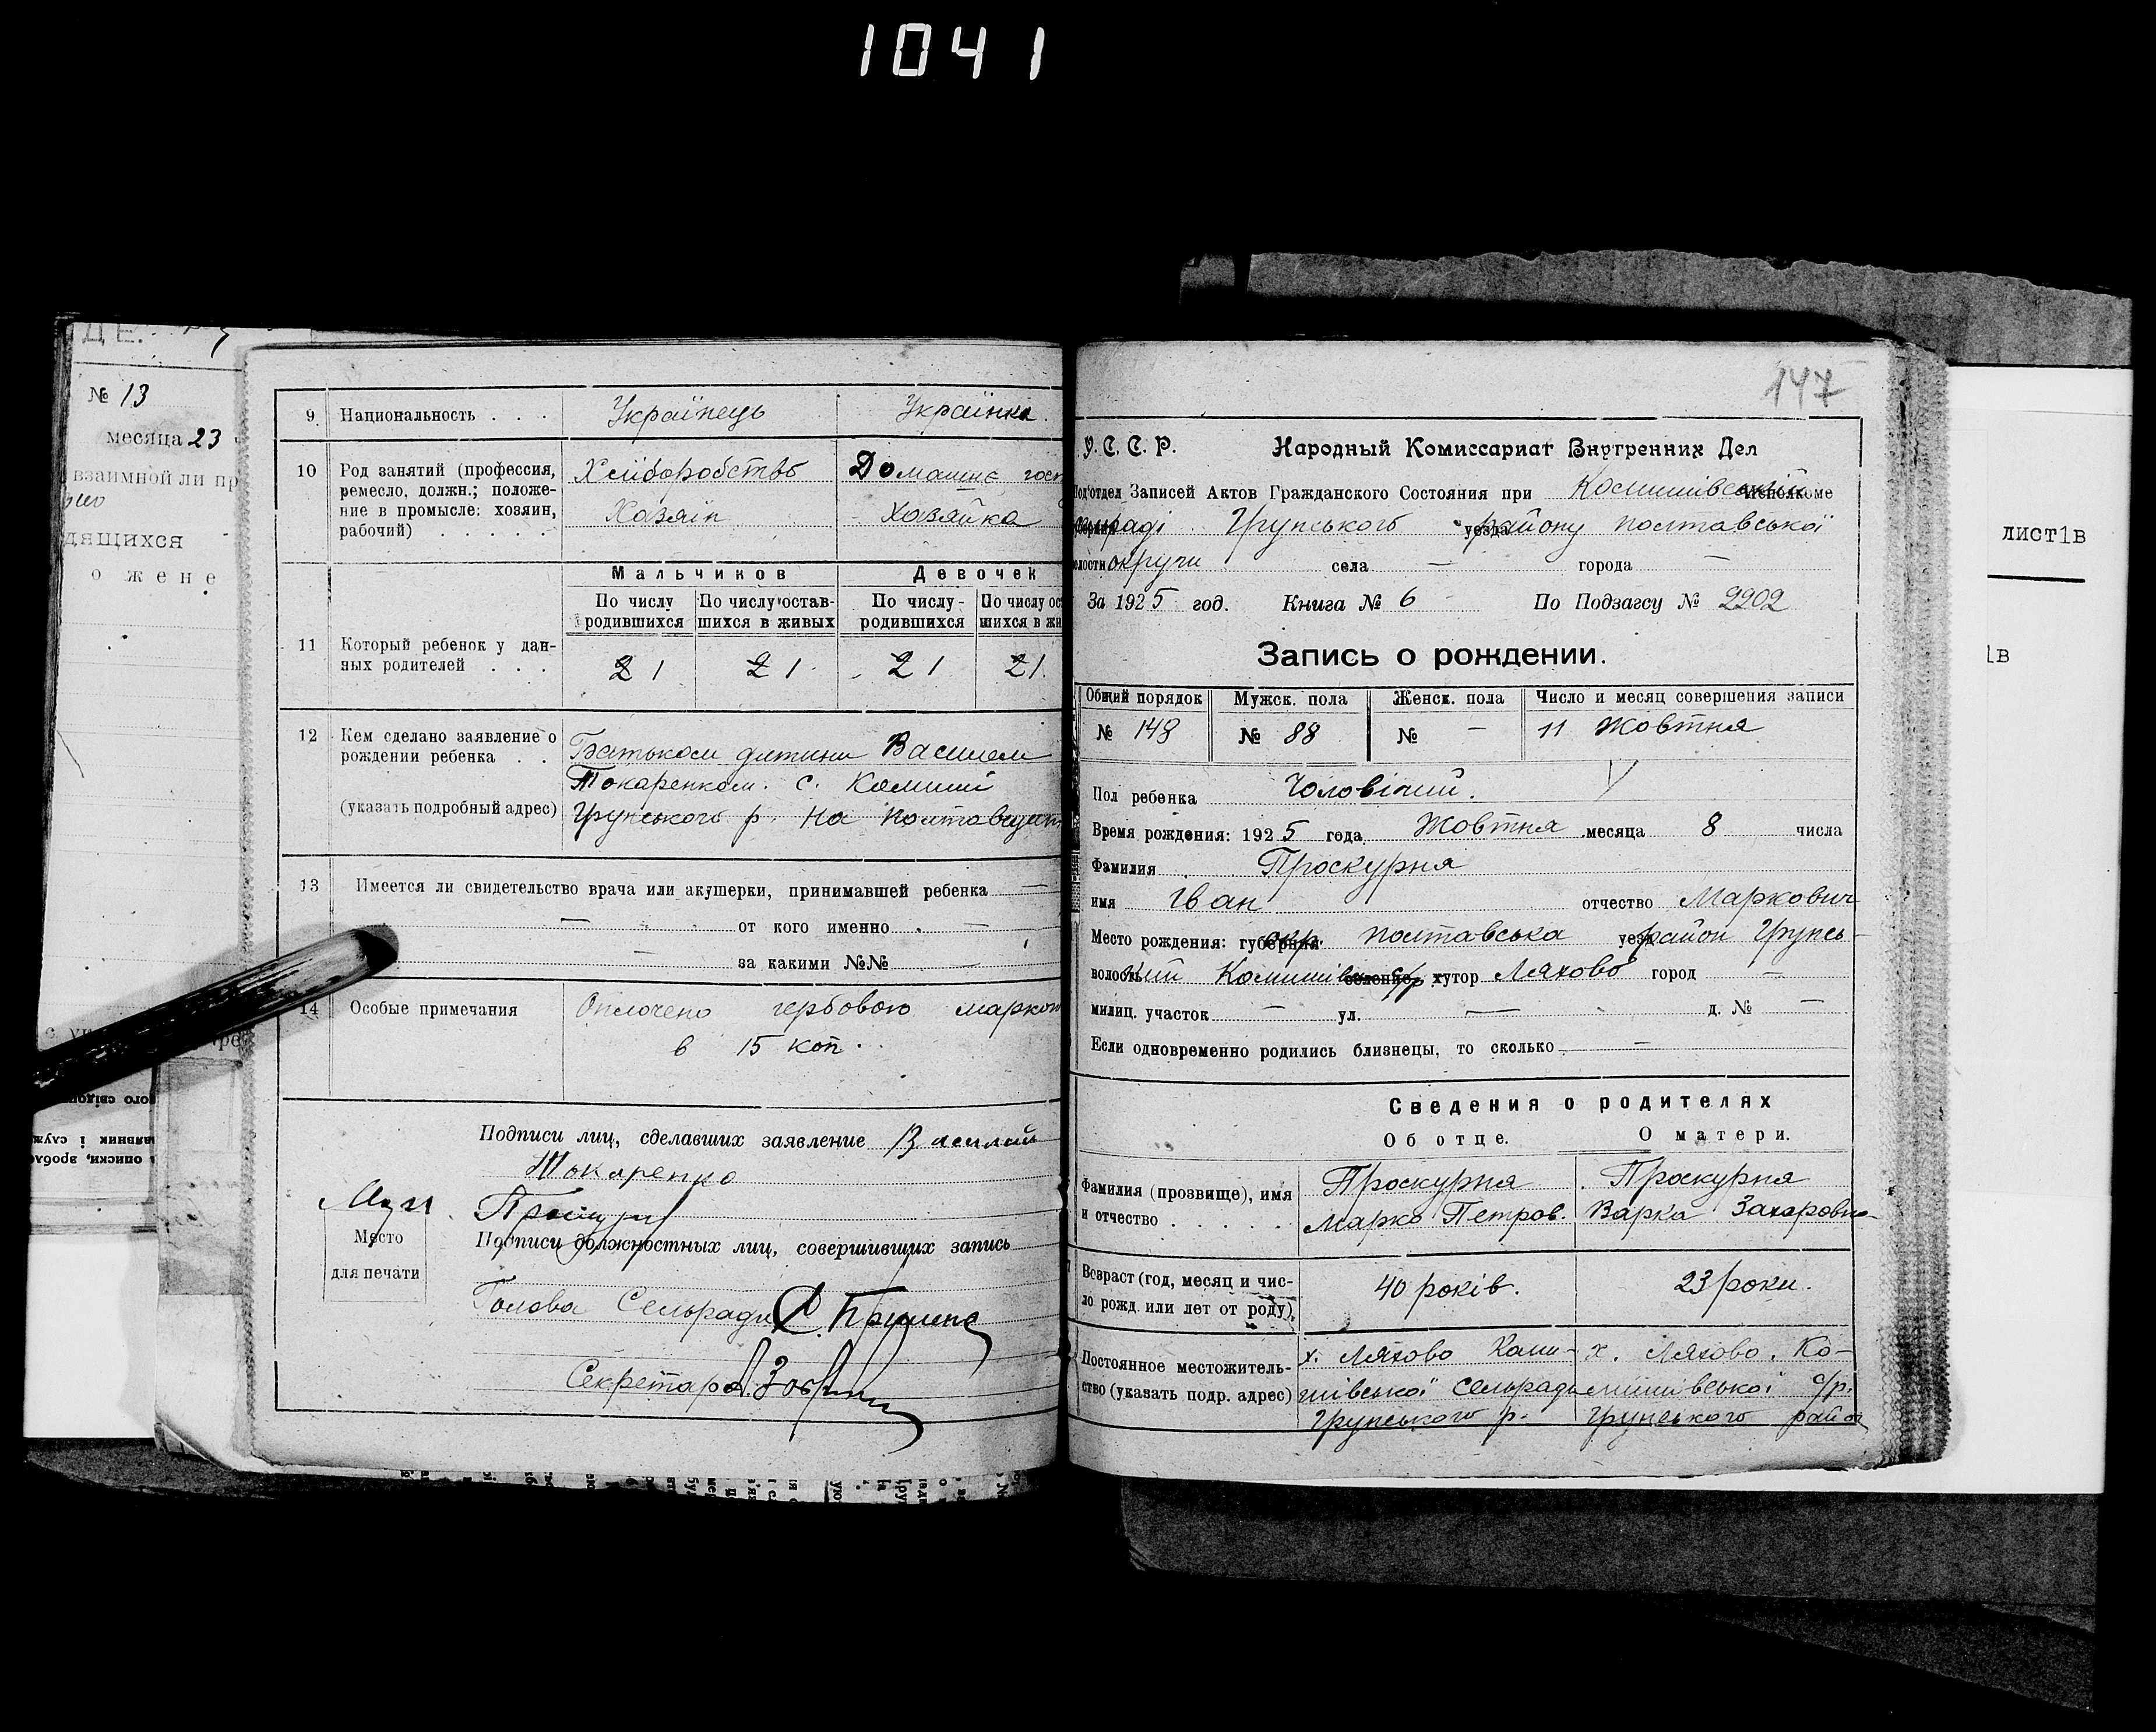 1041
№ 13
месяца 23
взаимной ли пр
дящихся
о жене
9 Национальность . . . Українець Українка.
10 Род занятий (профессия, ремесло, должн.; положение в промысле: хозяин, рабочий) . . . . .
Хліборобство Домашнє госп
Хазяїн Хазяйка
Мальчиков Девочек
По числу родившихся По числу оставшихся в живых По числу родившихся По числу ос шихся в жи
11 Который ребенок у данных родителей . . .
2 1 2 1 2 1 2 1
12 Кем сделано заявление о рождении ребенка . .
(указать подробный адрес)
Батьком дитини Василем
Токаренком. с. Комиші
Грунського р. На Полтавщин
13 Имеется ли свидетельство врача или акушерки, принимавшей ребенка —
— от кого именно . —
— за какими №№ —
14 Особые примечания Оплочено гербовою марко
в 15 коп.
Подписи лиц, сделавших заявление Василь
Токаренко
Место
для печати
Подписи должностных лиц, совершивших запись
Голова Сельради
Секретар
147
У. С. С. Р. Народный Комиссариат Внутренних Дел
Под'отдел Записей Актов Гражданского Состояния при Комишівській
сельраді Грунського уезда району Полтавської
округи села — города —
За 1925 год. Книга № 6 По Подзагсу № 2202
Запись о рождении.
Общий порядок Мужск. пола Женск. пола Число и месяц совершения записи
№ 148 № 88 № — 11 Жовтня
Пол ребенка Чоловічий.
Время рождения: 1925 года Жовтня месяца 8 числа
Фамилия Проскурня
имя Іван отчество Маркович
Место рождения: губерния окр. Полтавська уезд район Грунсь-
волость кий Комишів селение с/р хутор Ляхово город —
милиц. участок — ул. — д. № —
Если одновременно родились близнецы, то сколько —
Сведения о родителях
Об отце. О матери.
Фамилия (прозвище), имя и отчество . . . . . .
Проскурня Проскурня
Марко Петров. Варка Захаровна
Возраст (год, месяц и число рожд. или лет от роду)
40 років. 23 роки.
Постоянное местожительство (указать подр. адрес)
х. Ляхово Коми- х. Ляхово. Ко-
шівської Сельради мишівської с/р.
Грунського р. Грунського район
лист1в
1в